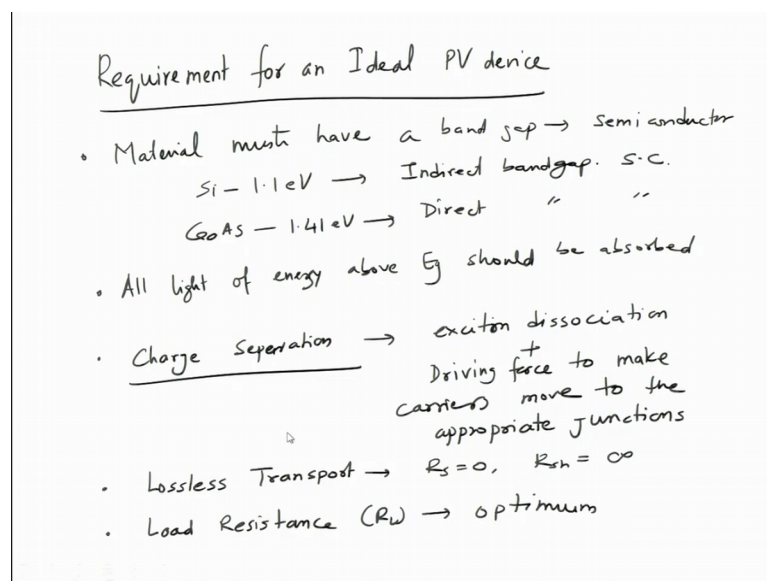 Requirement for an Ideal PV device
• Material must have a band gap → semiconductor
Si – 1.1 eV → Indirect bandgap. S.C.
GaAs – 1.41 eV → Direct " "
• All light of energy above Eg should be absorbed
• Charge Seperation → exciton dissociation
+
Driving force to make
carriers move to the
appropriate Junctions
• Lossless Transport → Rs = 0, Rsh = ∞
• Load Resistance (RL) → optimum